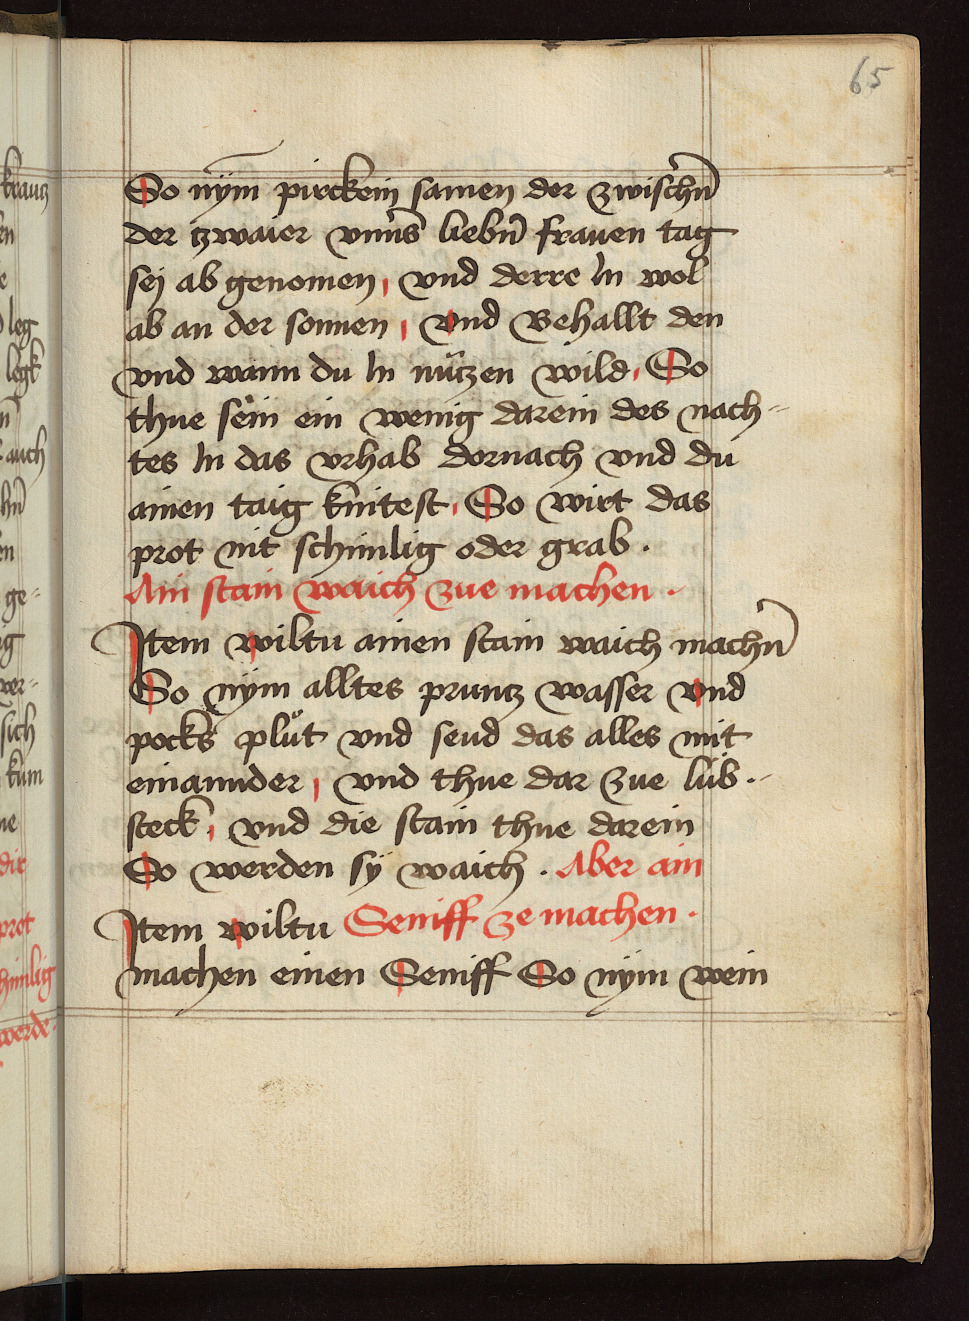 65
So nÿm pirckein samen der zwischn̄
der tzwaier vnns̄ liebn̄ frauen tag
sej ab genomen, vnd derre In wol
ab an der sonnen, vnd Behallt den
vnd wann du In nützen wild, So
thue sein ein wenig darein des nach-
tes In das vrhab dornach vnd du
ainen taig knitest, So wirt das
prot nit schimlig oder grab.
Ain stain waich zue machen.
Item wiltu ainen stain waich machn̄
So nÿm alltes pruntz wasser vnd
pocks plůt vnd seud das alles mit
einannder, vnd thue dar zue lúb-
steck, vnd die stain thue darein
So werden sÿ waich. Aber ain
Item wiltu Seniff ze machen.
machen einen Seniff So nÿm wein